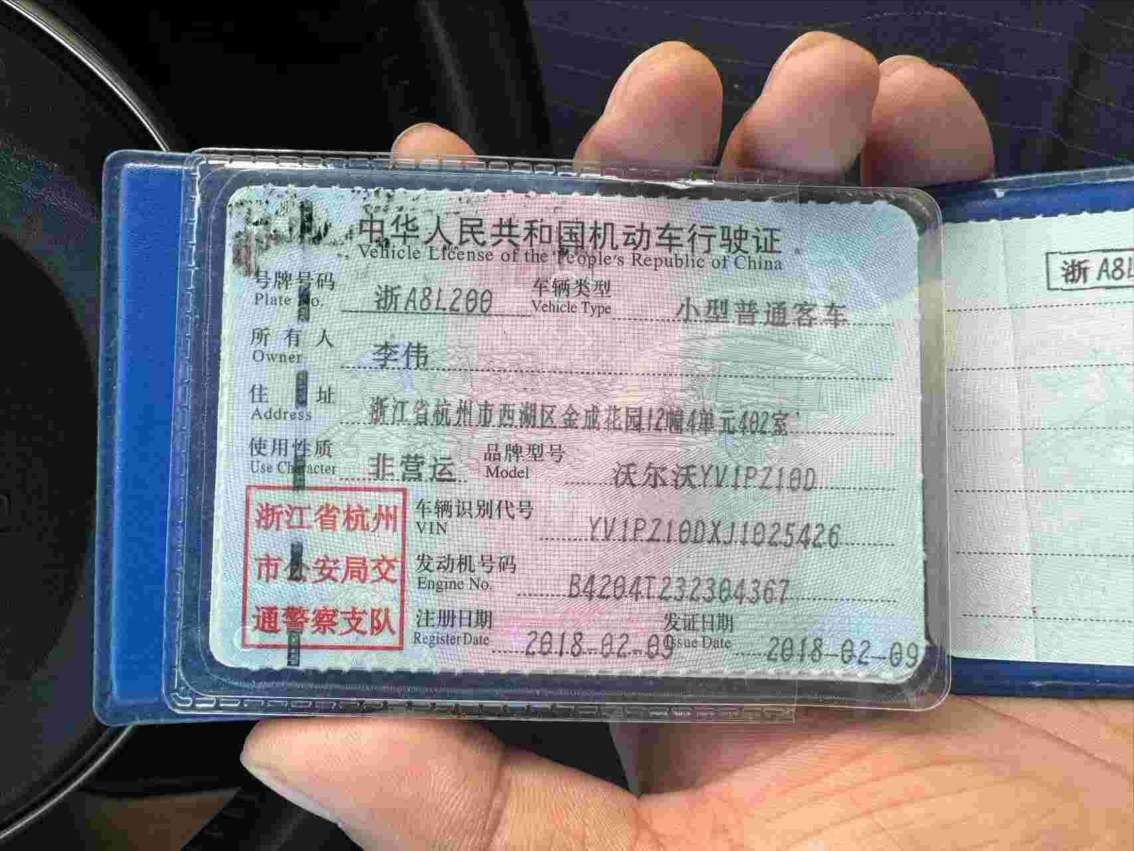 中华人民共和国机动车行驶证
Vehicle License of the People's Republic of China
号牌号码 浙A8L200 车辆类型 小型普通客车
Plate No. Vehicle Type
所有人 李伟
Owner
住址 浙江省杭州市西湖区金成花园12幢4单元402室
Address
使用性质 非营运 品牌型号 沃尔沃YV1PZ10D
Use Character Model
浙江省杭州
市公安局交
通警察支队
车辆识别代号 YV1PZ10DXJ1025426
VIN
发动机号码 B4204T232304367
Engine No.
注册日期 2018-02-09 发证日期 2018-02-09
Register Date Issue Date
浙A8L